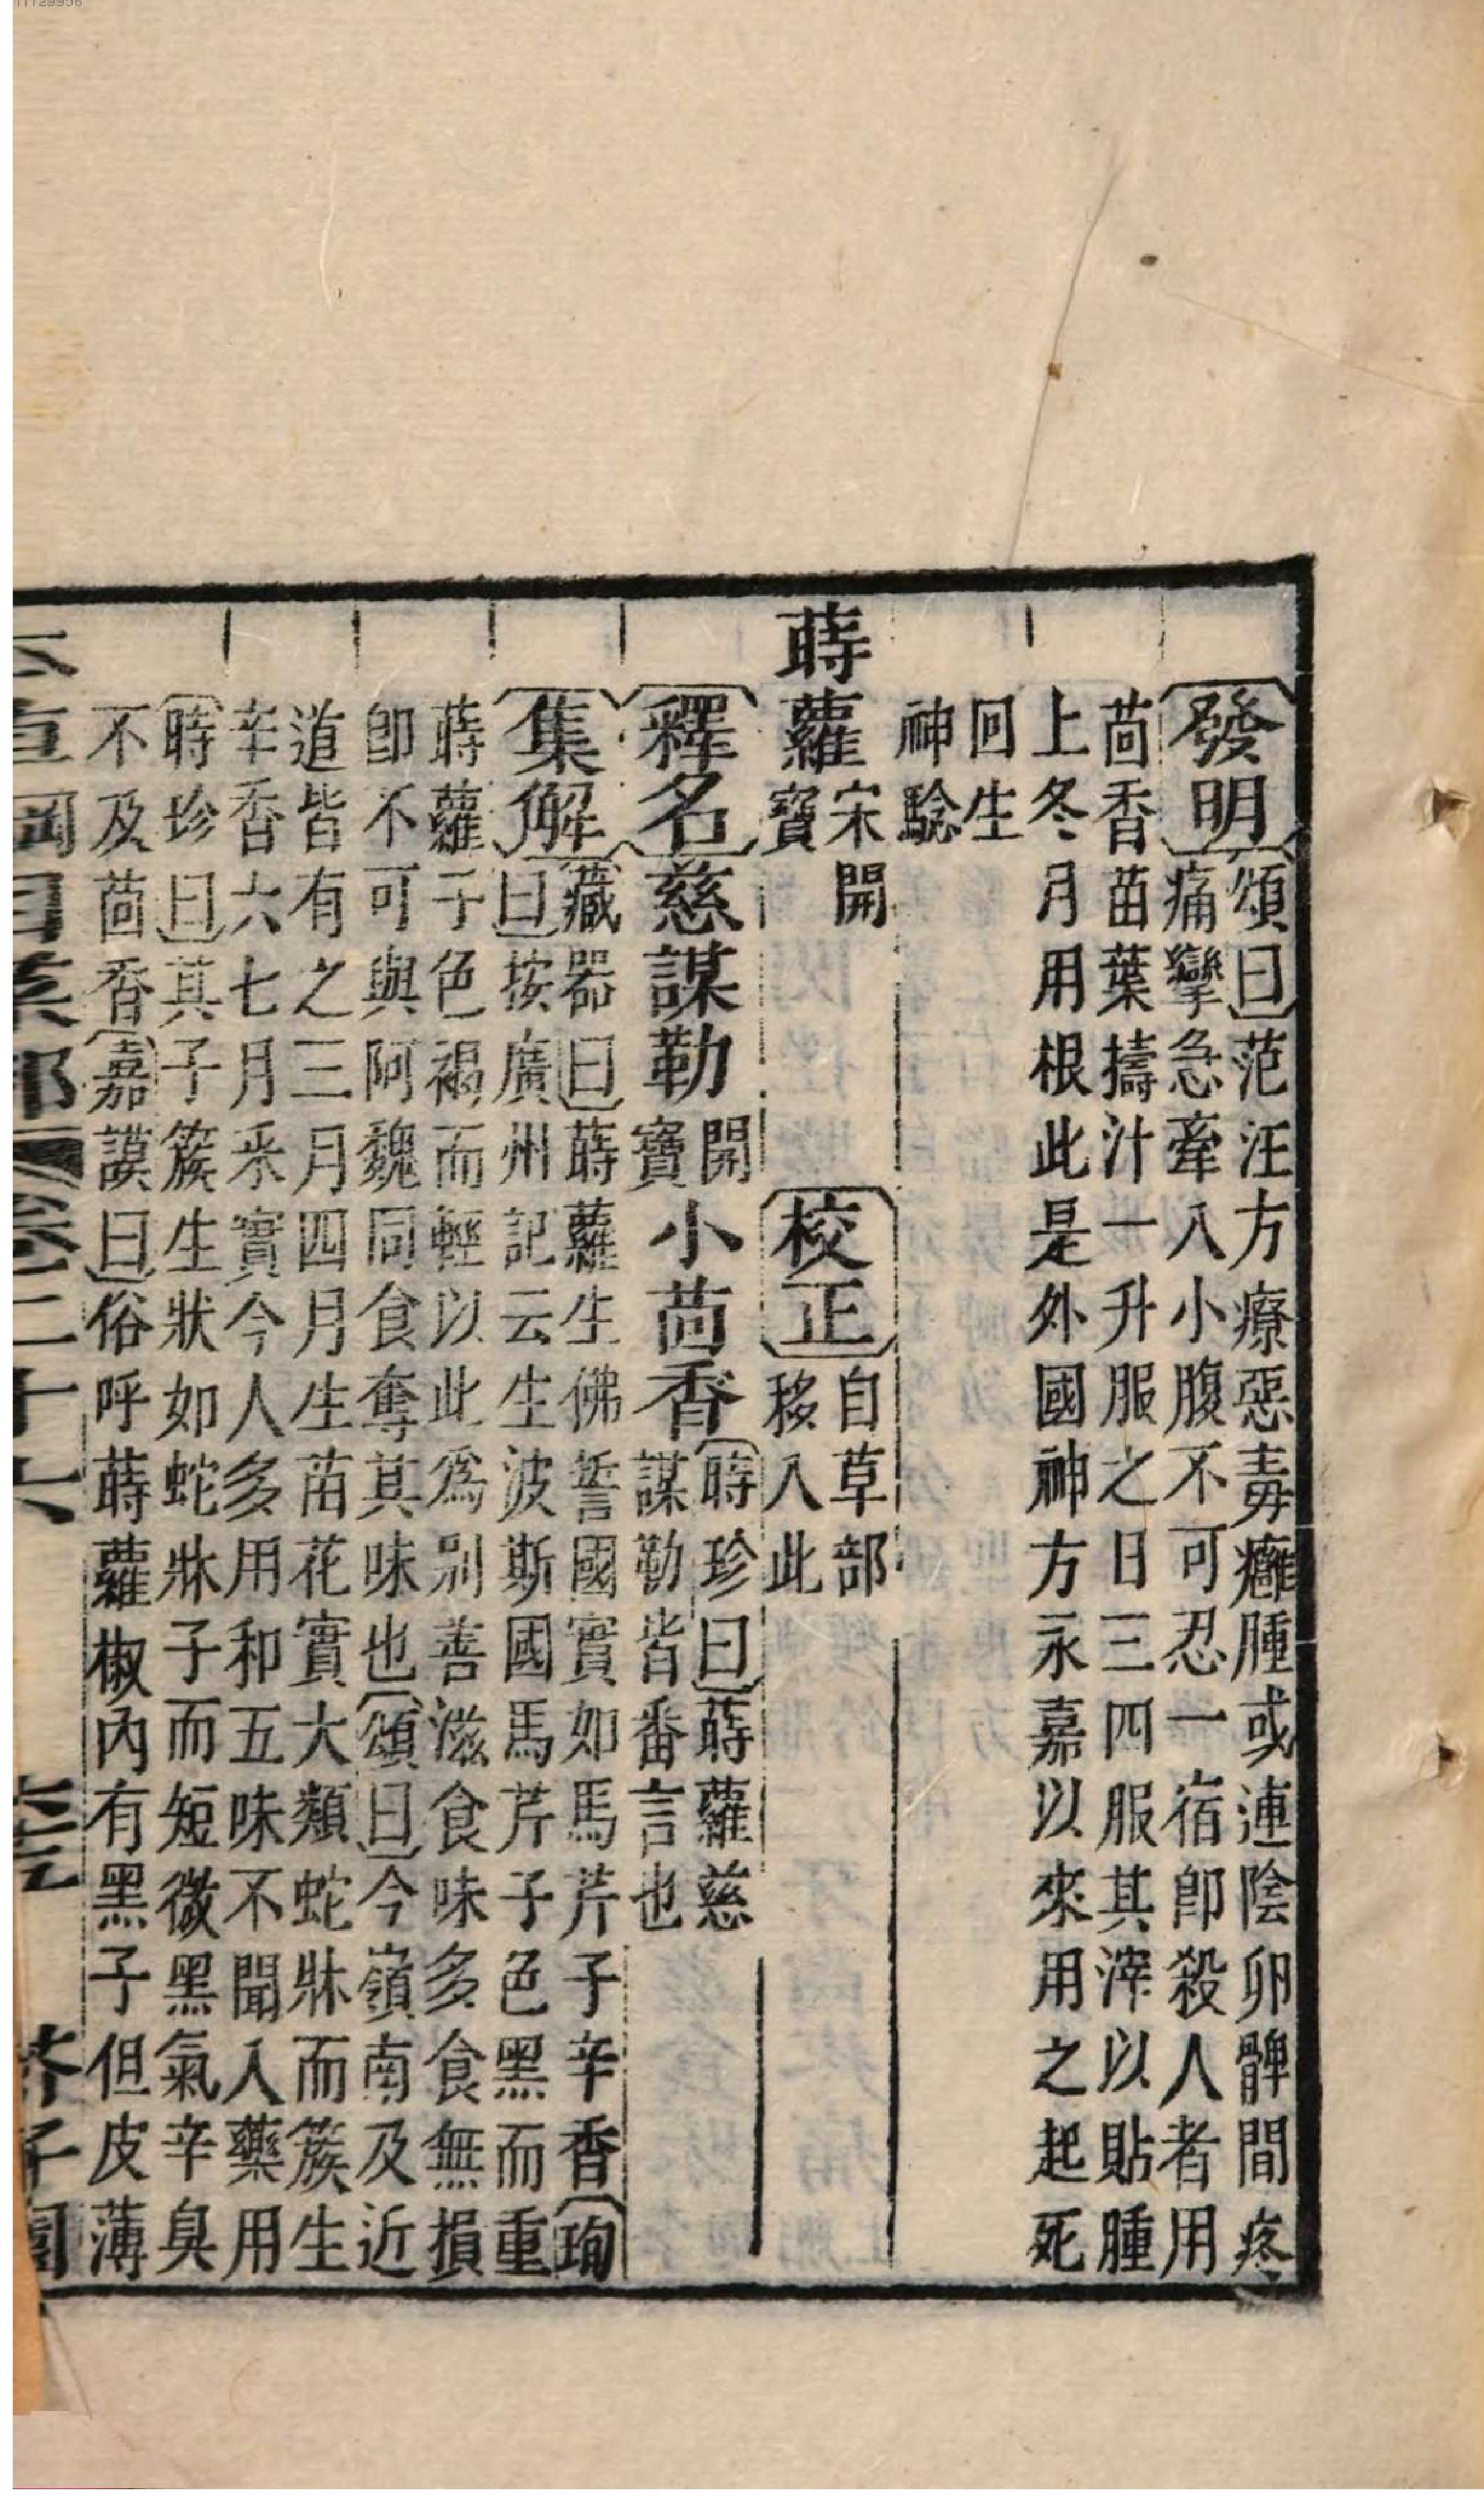 發明頌曰范汪方療惡毒癰腫或連陰卵髀間疼
痛攣急牽入小腹不可忍一宿卽殺人者用
茴香苗葉擣汁一升服之日三四服其滓以貼腫
上冬月用根此是外國神方永嘉以來用之起死
回生
神驗
蒔蘿宋開
寶校正自草部
移入此
釋名慈謀勒開
寶小茴香時珍曰蒔蘿慈
謀勒皆番言也
集解藏器曰蒔蘿生佛誓國實如馬芹子辛香珣
曰按廣州記云生波斯國馬芹子色黑而重
蒔蘿子色褐而輕以此爲别善滋食味多食無損
卽不可與阿魏同食奪其味也頌曰今嶺南及近
道皆有之三月四月生苗花實大類蛇牀而簇生
辛香六七月采實今人多用和五味不聞入藥用
時珍曰其子簇生狀如蛇牀子而短微黑氣辛臭
不及茴香嘉謨曰俗呼蒔蘿椒內有黑子但皮薄
卷二十六